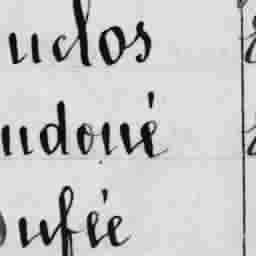 uclos
udoué
ufée